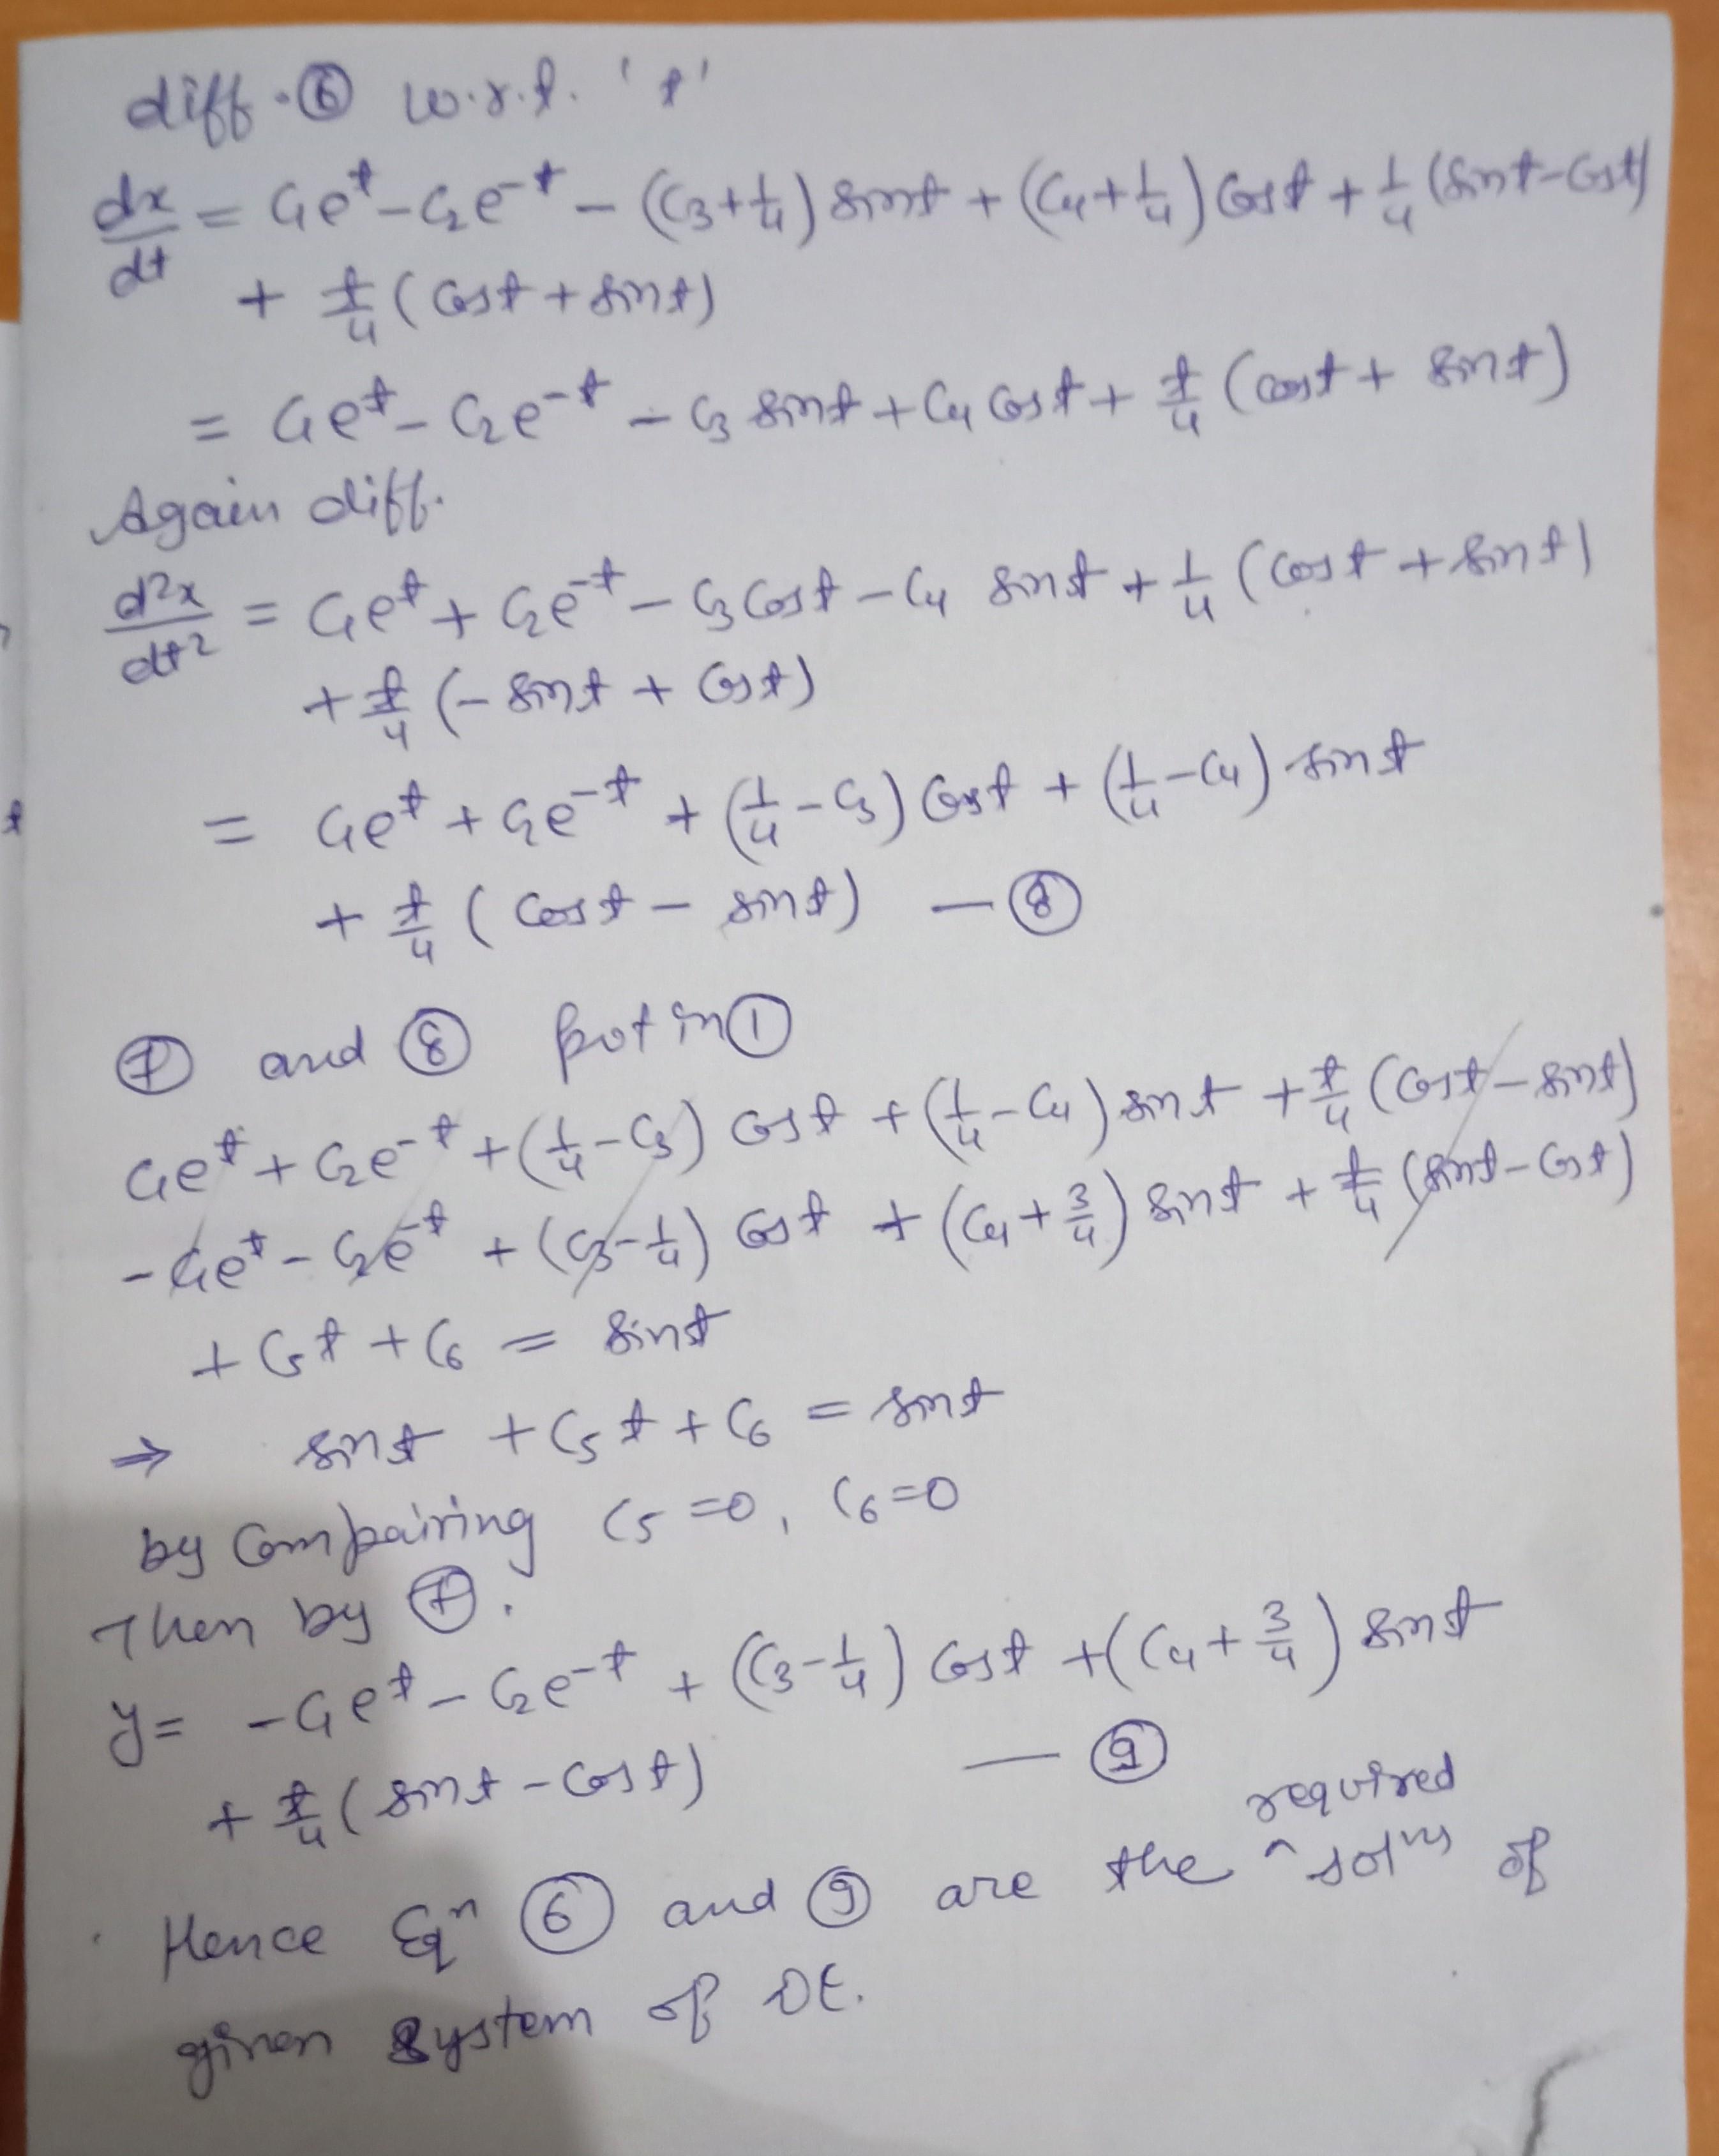 diff. ⑥ w.r.t. 't'
dx/dt = C₁eᵗ - C₂e⁻ᵗ - (C₃+1/4) sint + (C₄+1/4) Cost + 1/4 (sint-Cost)
+ t/4 (Cost + sint)
= C₁eᵗ - C₂e⁻ᵗ - C₃ sint + C₄ Cost + t/4 (cost + sint)
Again diff.
d²x/dt² = C₁eᵗ + C₂e⁻ᵗ - C₃ Cost - C₄ sint + 1/4 (Cost + sint)
+ t/4 (- sint + Cost)
= C₁eᵗ + C₂e⁻ᵗ + (1/4 - C₃) Cost + (1/4 - C₄) sint
+ t/4 (Cost - sint) — ⑧
⑦ and ⑧ put in ①
C₁eᵗ + C₂e⁻ᵗ + (1/4 - C₃) Cost + (1/4 - C₄) sint + t/4 (Cost - sint)
- C₁eᵗ - C₂e⁻ᵗ + (C₃ - 1/4) Cost + (C₄ + 3/4) sint + t/4 (sint - Cost)
+ C₅t + C₆ = sint
⇒ sint + C₅t + C₆ = sint
by Compairing C₅ = 0, C₆ = 0
Then by ⑦.
y = - C₁eᵗ - C₂e⁻ᵗ + (C₃ - 1/4) Cost + (C₄ + 3/4) sint
+ t/4 (sint - Cost) — ⑨
Hence Eqⁿ ⑥ and ⑨ are the required solⁿˢ of
given system of DE.